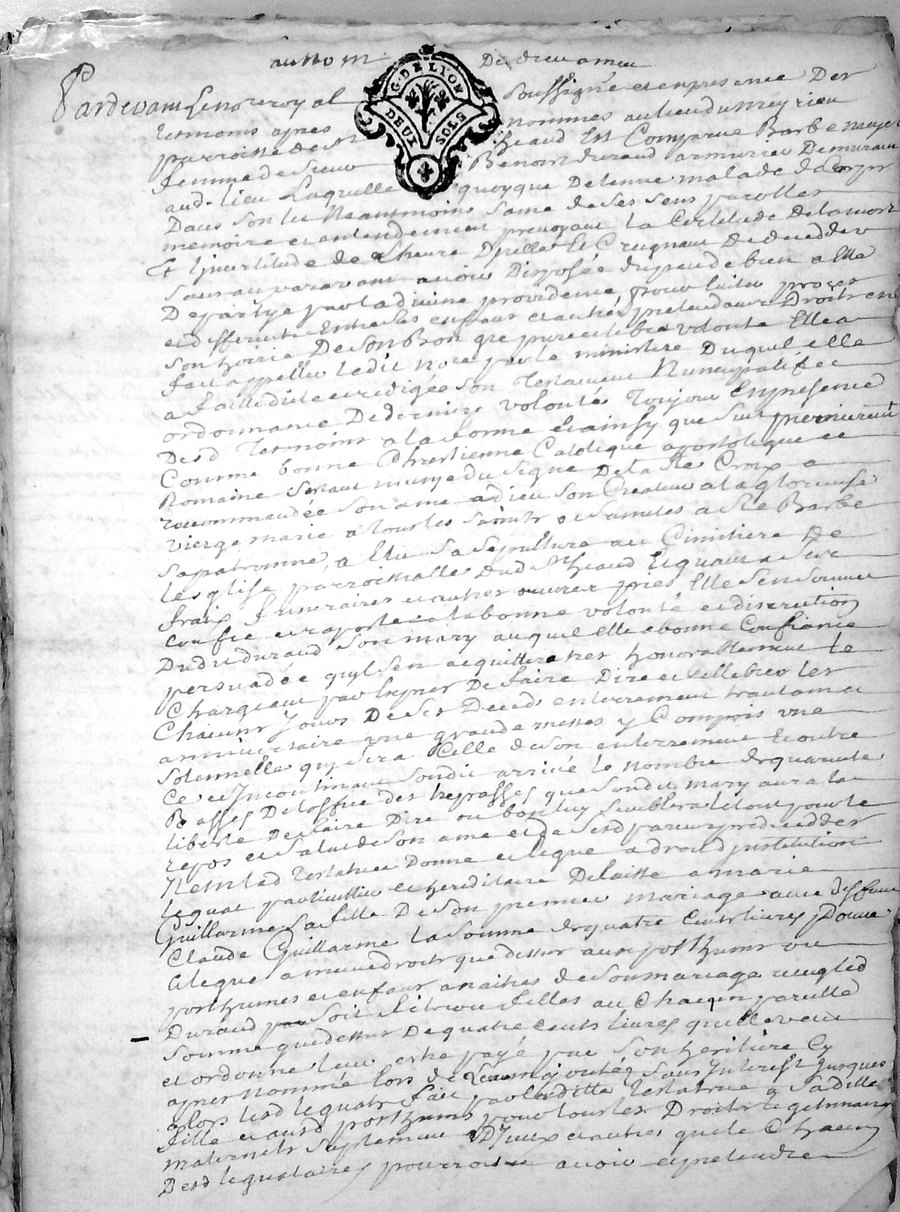 au Nom De dieu amen
G. DE LION
DEUX SOLS
Pardevant Le no.re royal Soussigné et en presence Des
tesmoins apres nommés au lieu du meyrieu
parroisse de St heaud Est Comparue Barbe meyer
femme de sieur Benoist duraud armurier Demeurant
aud. lieu Laquelle quoyque Detenue malade de Corps
Dans son lit Neantmoins Saine de Ses sens parolles
memoire et entendement prevoyant La Certitude De la mort
Et Lincertitude de Lheure Dycelle Et Craignant De decedder
Sans auparavant avoir Disposée du peu de bien a Elle
Departye par la divine providence pour Eviter proces
et differents Entre Ses enfans et autres pretendants Droits en
Son De Son Bon gre pure et libre volonté Elle a
fait appeller ledit no.re par le ministere Duquel elle
a fait et redigée Son Testament Nuncupatif et
ordonnance De derniere volonté Toujour En presence
Desd. Tesmoins a la forme Et ainsy que Suit premierement
Comme bonne Chrestienne Catolique apostolique et
Romaine Sestant munye du Signe De la Ste Croix a
recommandée Son ame a dieu Son Createur a la glorieuse
vierge marie a tous les Saints et Saintes a Ste Barbe
Sa patronne, a Elu Sa Sepulture au Cimitiere De
leglise parroissialle Dud. St heaud Et quant a Ses
fraix funeraires et autres œuvres pies Elle Sen Soumet
Confie et raporte a la bonne volonté et discretion
Dudit duraud Son mary auquel elle a bonne Confiance
persuadée quyl Sen acquittera tres honorablement Le
Chargeant par Expres De faire Dire et Cellebrer les
Chacuns Jours De Ses Deced enterrement quarantaine
anniversaire une grande messes y Compris une
Solennelle qui Sera Celle de Son enterrement Et outre
Ce et Incontinant Sondit arrivée le nombre de quarante
Basses De loffice des trepassés que Sondit mary aura la
liberté De faire Dire ou bon luy Semblera Le tout pour le
repos et Salut de Son ame et de Sesd. parents predecedder
Item lad. testatrice Donne et legue a droit d'institution
legat particullier et hereditaire Delaisse a marie
Guillarme Sa fille De Son premier mariage avec deffunt
Claude Guillarme La Somme de quatre Cents livres Donne
Et legue a meme droits que dessus aux posthume ou
posthumes et enfans a naitres de Son mariage avec led.
Duraud Soit fils ou filles au Chacun pareille
Somme que dessus De quatre Cents livres quelle veut
et ordonne leur estre payé par Son heritiere Cy
apres Nommée lors de leur majorité Sans Interest Jusques
alors lesd. legats fait par laditte testatrice a Saditte
fille et ausd. posthumes pour tous les Droits legitimaires
maternels Suplement Diceux et autres que le Chacun
Desd. legataires pourroit avoir et pretendre